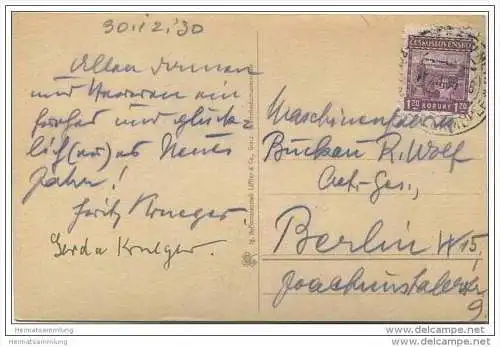 30.12.'30
Allen Damen
und Herren ein
frohes und glück-
lich(er)es Neues
Jahr!
Fritz Krueger
Gerda Krueger.
ČESKOSLOVENSKO
1.20 KORUNY 1.20
Maschinenfabrik
Buckau R. Wolf
Act. Ges.,
Berlin W15,
Joachimstaler
9
Heimatsammlung
Heimatsammlung
www.delcampe.net